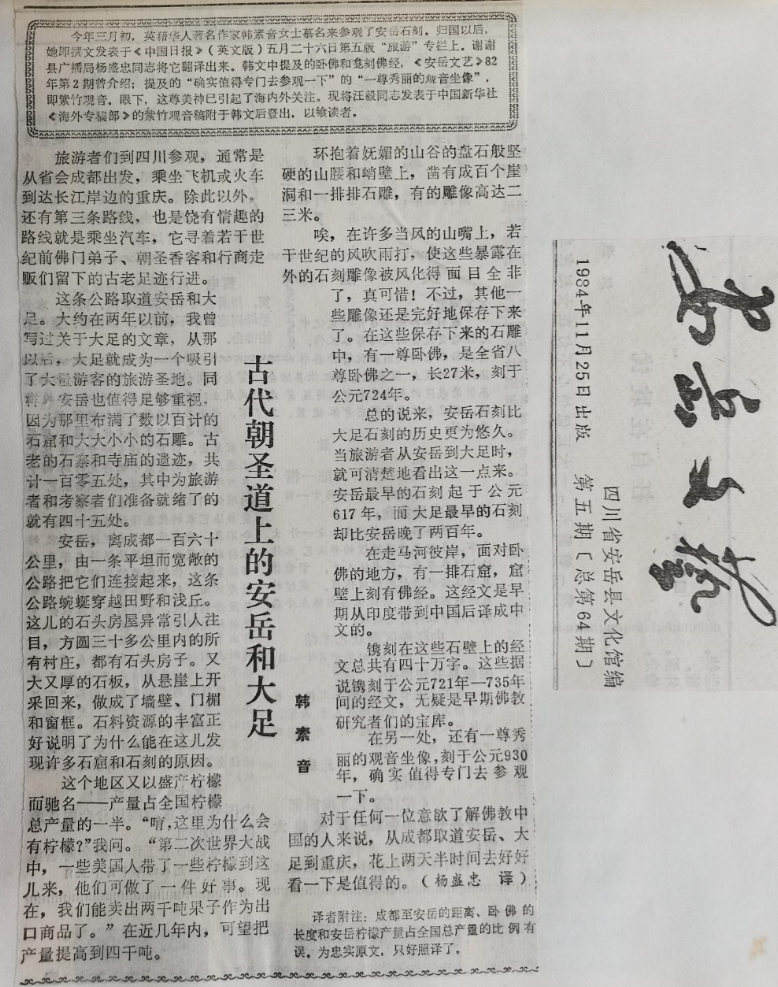 今年三月初，英籍华人著名作家韩素音女士慕名来参观了安岳石刻。归国以后，
她即撰文发表于《中国日报》（英文版）五月二十六日第五版“旅游”专栏上。谢谢
县广播局杨盛忠同志将它翻译出来。韩文中提及的卧佛和龛刻佛经，《安岳文艺》82
年第2期曾介绍；提及的“确实值得专门去参观一下”的“一尊秀丽的观音坐像”，
即紫竹观音。眼下，这尊美神已引起了海内外关注。现将汪毅同志发表于中国新华社
《海外专稿部》的紫竹观音稿附于韩文后登出，以飨读者。
古代朝圣道上的安岳和大足
韩素音
旅游者们到四川参观，通常是
从省会成都出发，乘坐飞机或火车
到达长江岸边的重庆。除此以外，
还有第三条路线，也是饶有情趣的
路线就是乘坐汽车，它寻着若干世
纪前佛门弟子、朝圣香客和行商走
贩们留下的古老足迹行进。
这条公路取道安岳和大
足。大约在两年以前，我曾
写过关于大足的文章，从那
以后，大足就成为一个吸引
了大量游客的旅游圣地。同
样，安岳也值得足够重视，
因为那里布满了数以百计的
石窟和大大小小的石雕。古
老的石寨和寺庙的遗迹，共
计一百零五处，其中为旅游
者和考察者们准备就绪了的
就有四十五处。
安岳，离成都一百六十
公里，由一条平坦而宽敞的
公路把它们连接起来，这条
公路蜿蜒穿越田野和浅丘。
这儿的石头房屋异常引人注
目，方圆三十多公里内的所
有村庄，都有石头房子。又
大又厚的石板，从悬崖上开
采回来，做成了墙壁、门楣
和窗框。石料资源的丰富正
好说明了为什么能在这儿发
现许多石窟和石刻的原因。
这个地区又以盛产柠檬
而驰名——产量占全国柠檬
总产量的一半。“唷，这里为什么会
有柠檬？”我问。“第二次世界大战
中，一些美国人带了一些柠檬到这
儿来，他们可做了一件好事。现
在，我们能卖出两千吨果子作为出
口商品了。”在近几年内，可望把
产量提高到四千吨。
环抱着妩媚的山谷的盘石般坚
硬的山腰和峭壁上，凿有成百个崖
洞和一排排石雕，有的雕像高达二
三米。
唉，在许多当风的山嘴上，若
干世纪的风吹雨打，使这些暴露在
外的石刻雕像被风化得面目全非
了，真可惜！不过，其他一
些雕像还是完好地保存下来
了。在这些保存下来的石雕
中，有一尊卧佛，是全省八
尊卧佛之一，长27米，刻于
公元724年。
总的说来，安岳石刻比
大足石刻的历史更为悠久。
当旅游者从安岳到大足时，
就可清楚地看出这一点来。
安岳最早的石刻起于公元
617年，而大足最早的石刻
却比安岳晚了两百年。
在走马河彼岸，面对卧
佛的地方，有一排石窟，窟
壁上刻有佛经。这经文是早
期从印度带到中国后译成中
文的。
镌刻在这些石壁上的经
文总共有四十万字。这些据
说镌刻于公元721年—735年
间的经文，无疑是早期佛教
研究者们的宝库。
在另一处，还有一尊秀
丽的观音坐像，刻于公元930
年，确实值得专门去参观
一下。
对于任何一位意欲了解佛教中
国的人来说，从成都取道安岳、大
足到重庆，花上两天半时间去好好
看一下是值得的。（杨盛忠 译）
译者附注：成都至安岳的距离、卧佛的
长度和安岳柠檬产量占全国总产量的比例有
误。为忠实原文，只好照译了。
安岳文艺
四川省安岳县文化馆编
1984年11月25日出版 第五期〔总第64期〕